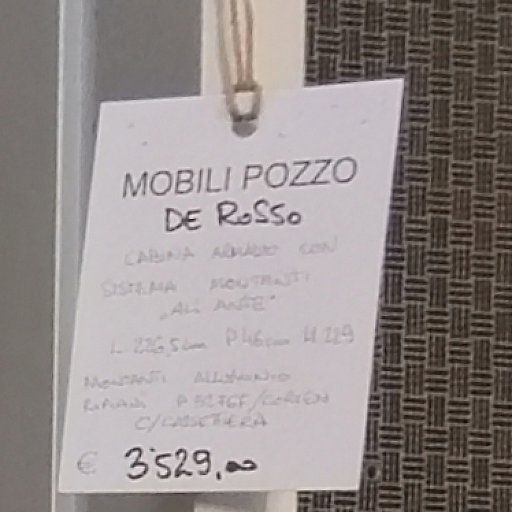 MOBILI POZZO
DE ROSSO
CABINA ARMADIO CON
SISTEMA MONTANTI
L 226,5cm P46cm H 229
MONTANTI ALLUMINIO
RIPIANI
C/CASSETTIERA
€ 3'529,00